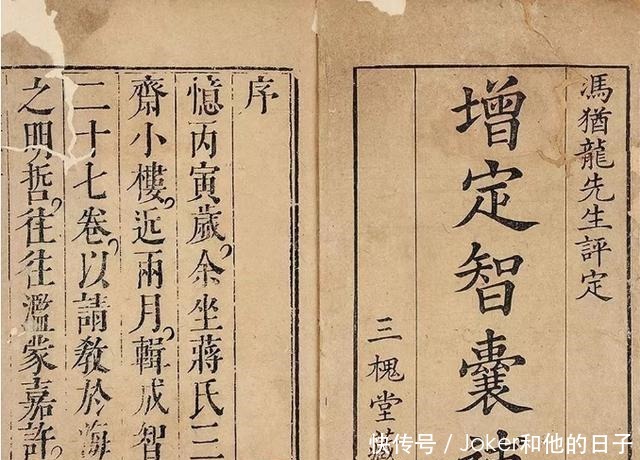 馮猶龍先生評定
增定智囊
三槐堂藏
序
憶丙寅歲。余坐蔣氏三
齋小樓。近兩月。輯成智
二十七卷。以請教於海
之明哲。往往濫蒙嘉許。
快传号 / Joker和他的日子